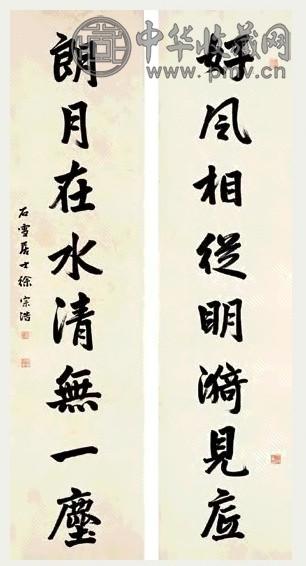 中华收藏网
pmv.cn
好风相從明漪見底
朗月在水清無一塵
石雪居士徐宗浩